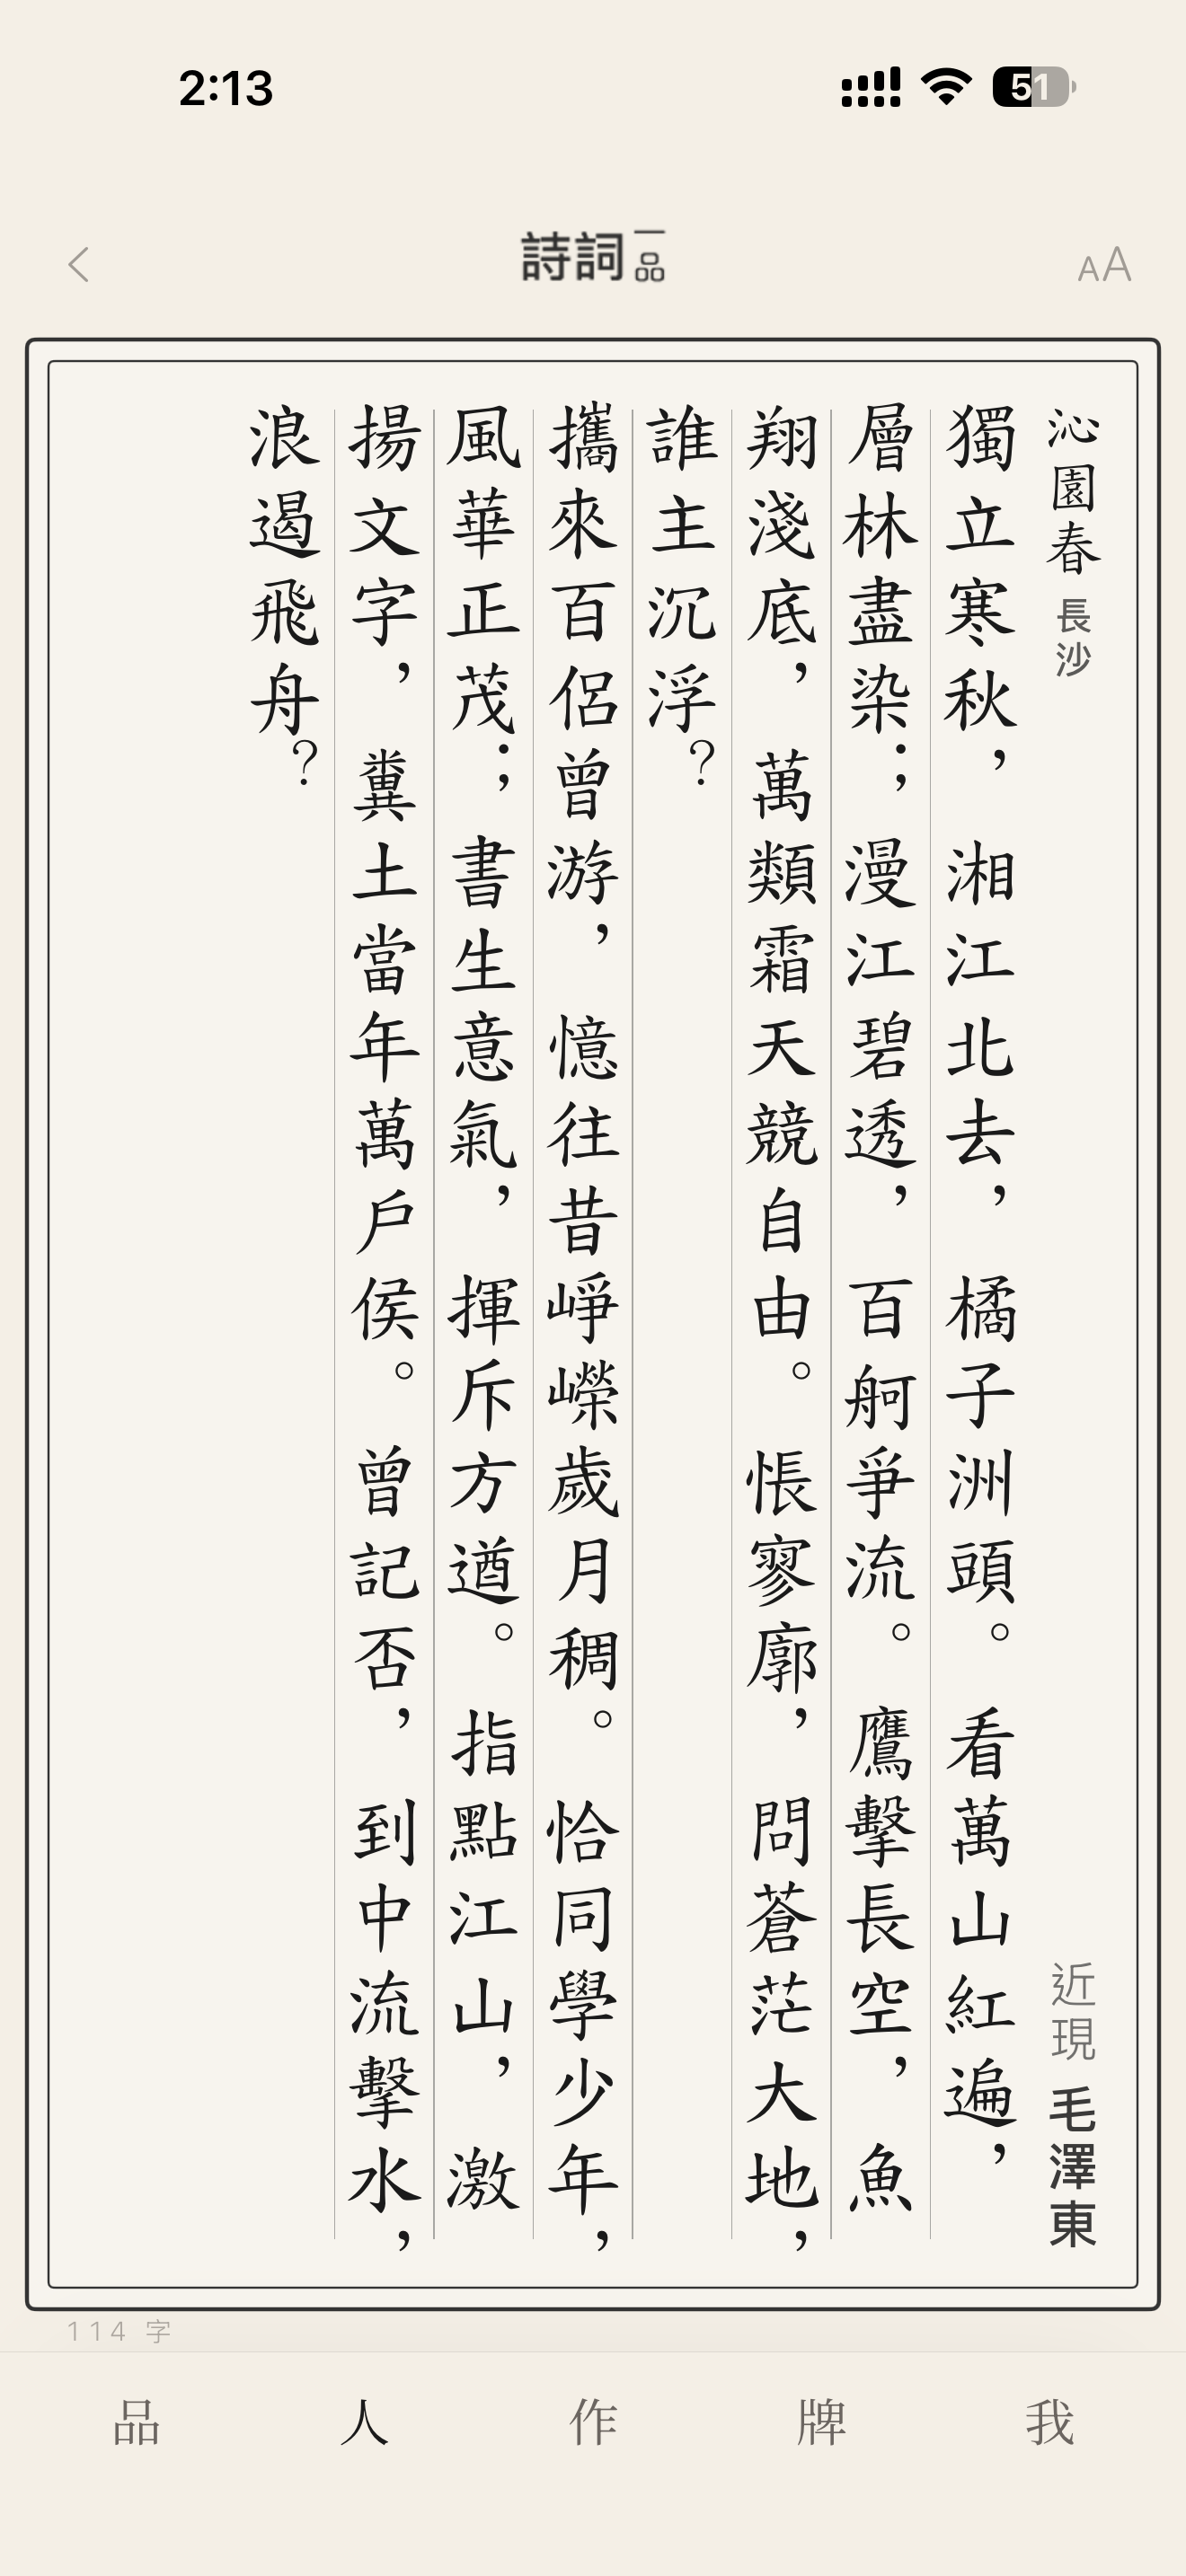 2:13
51
詩詞一品
AA
沁園春 長沙
近現 毛澤東
獨立寒秋，湘江北去，橘子洲頭。看萬山紅遍，
層林盡染；漫江碧透，百舸爭流。鷹擊長空，魚
翔淺底，萬類霜天競自由。悵寥廓，問蒼茫大地，
誰主沉浮？
攜來百侶曾游，憶往昔崢嶸歲月稠。恰同學少年，
風華正茂；書生意氣，揮斥方遒。指點江山，激
揚文字，糞土當年萬戶侯。曾記否，到中流擊水，
浪遏飛舟？
114 字
品 人 作 牌 我